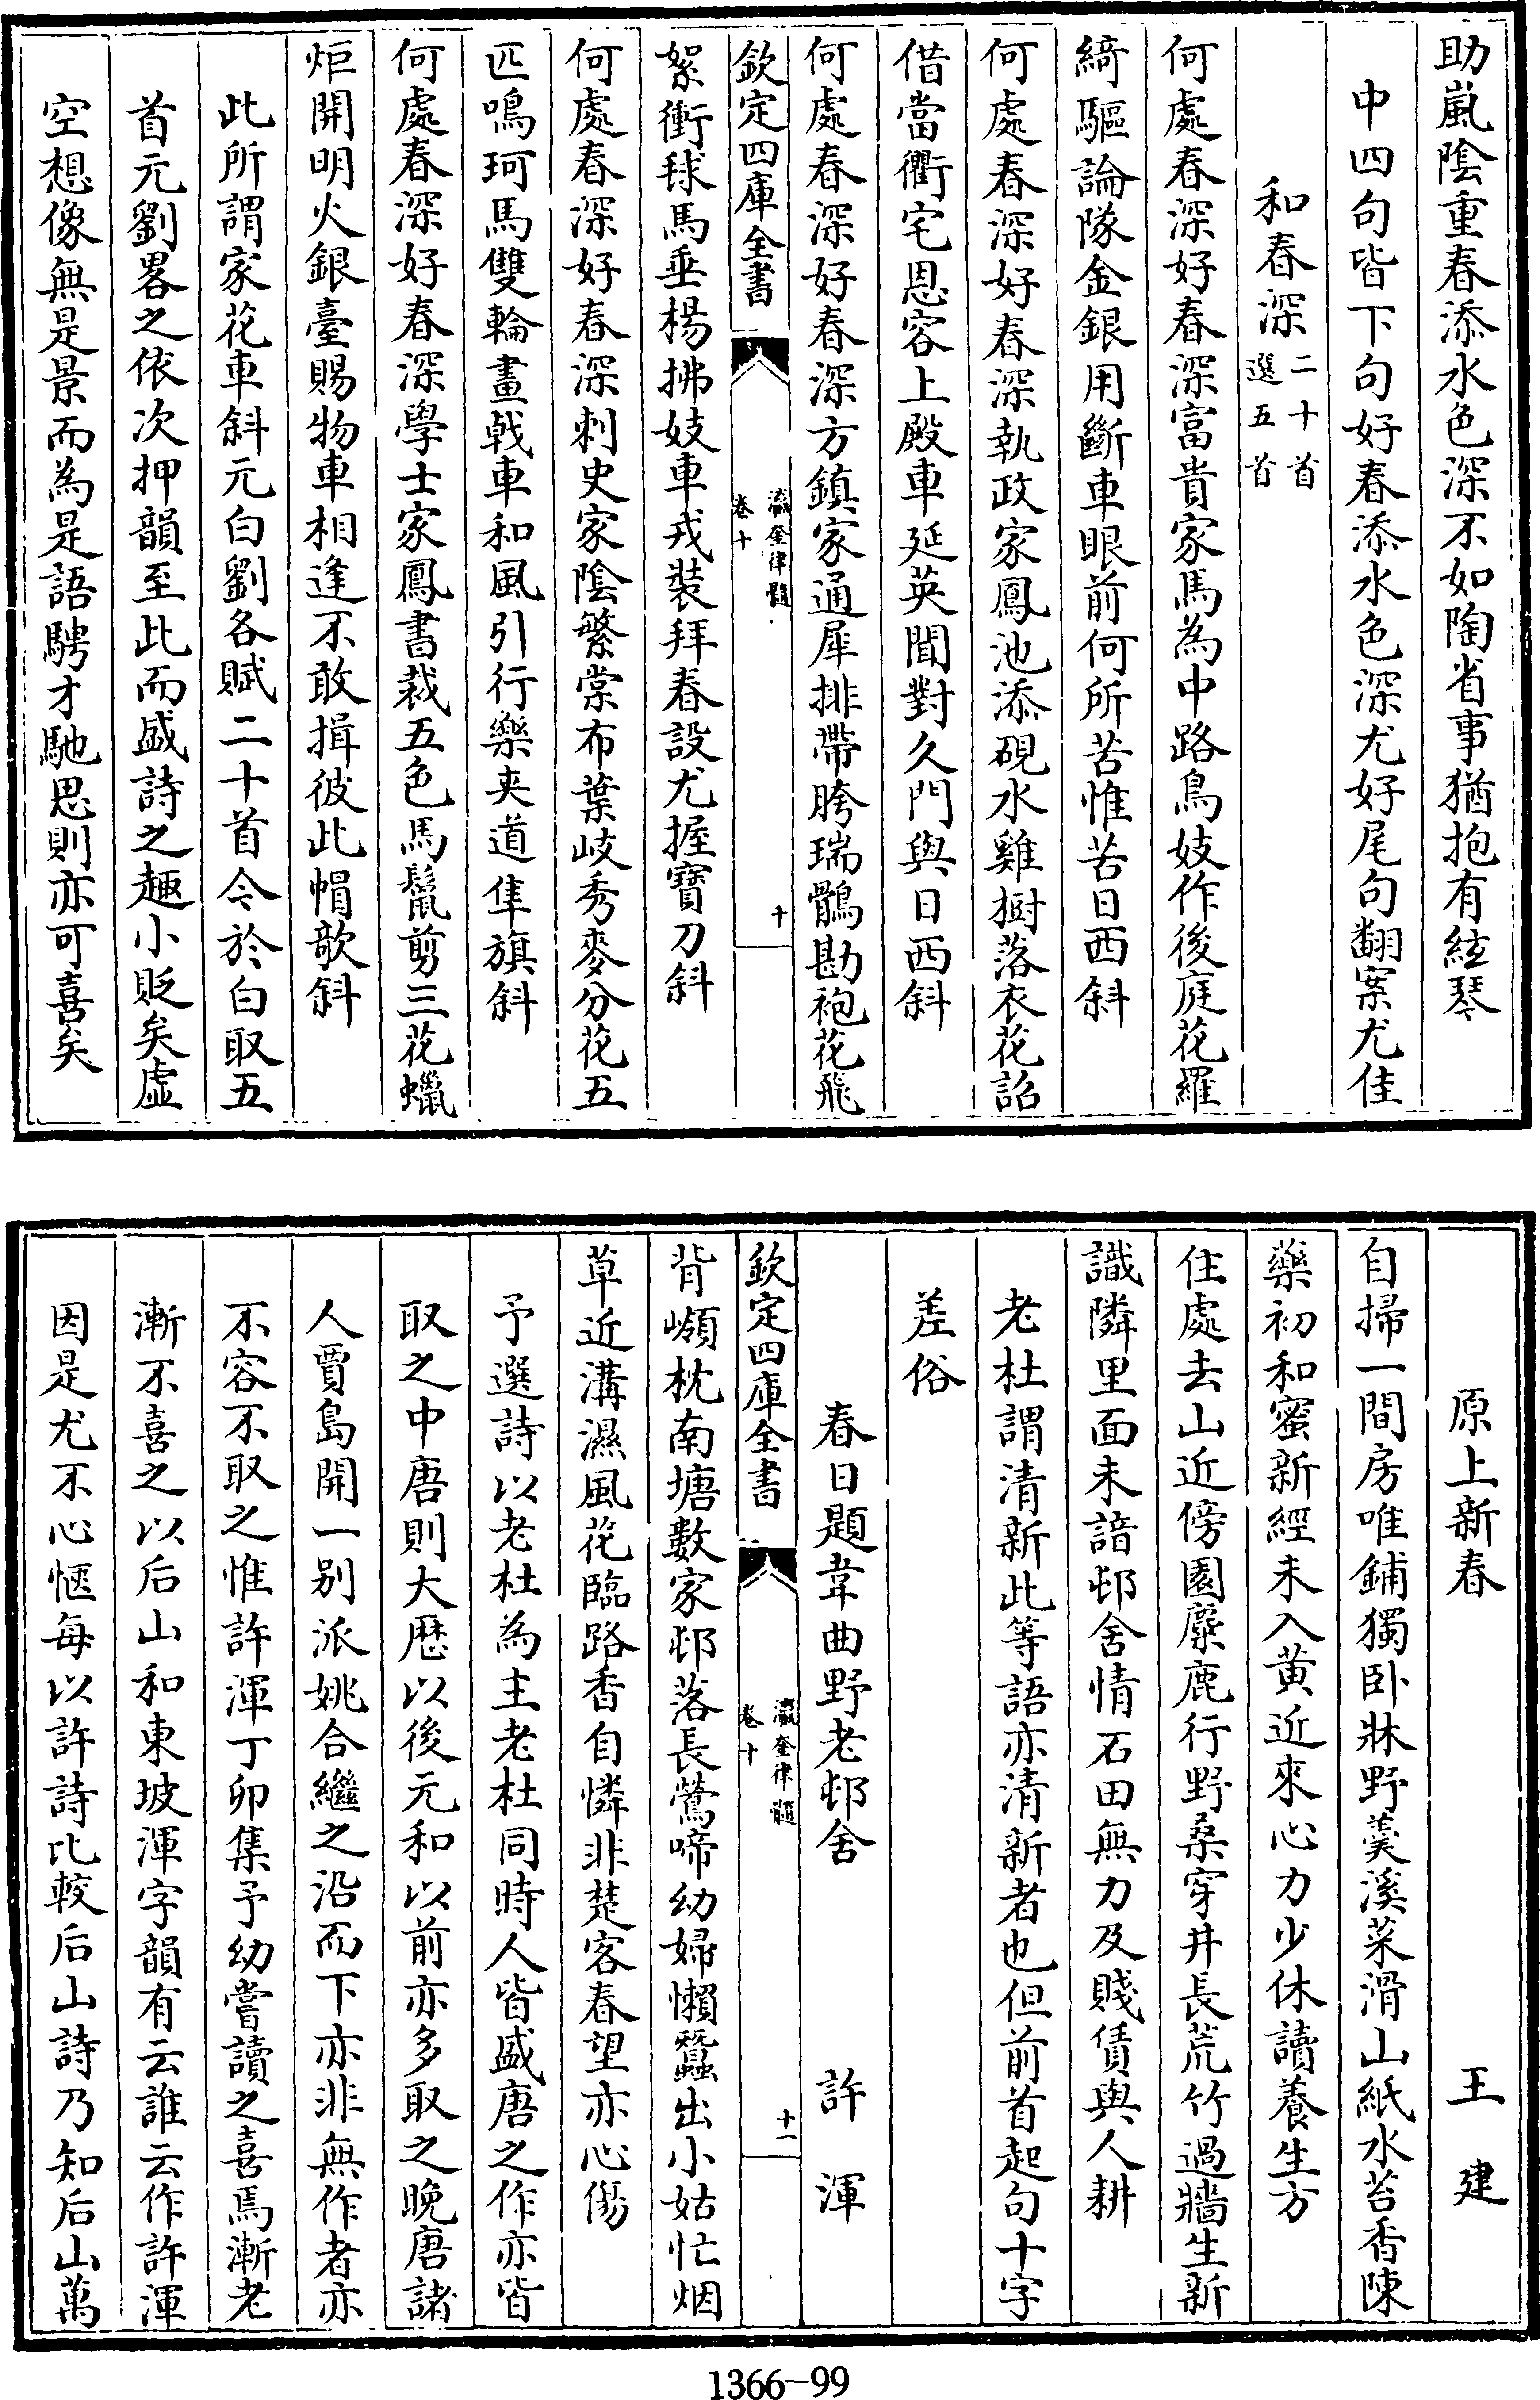 助嵐陰重春添水色深不如陶省事猶抱有絃琴
中四句皆下句好春添水色深尤好尾句翻案尤佳
和春深二十首
選五首
何處春深好春深富貴家馬為中路鳥妓作後庭花羅
綺驅論隊金銀用斷車眼前何所苦惟苦日西斜
何處春深好春深執政家鳳池添硯水雞樹落衣花詔
借當衢宅恩容上殿車延英閒對久門與日西斜
何處春深好春深方鎮家通犀排帶胯瑞鶻勘袍花飛
欽定四庫全書
瀛奎律髓
卷十
十
絮衝毬馬垂楊拂妓車戎裝拜春設尤握寶刀斜
何處春深好春深刺史家陰繁棠布葉岐秀麥分花五
匹鳴珂馬雙輪畫戟車和風引行樂夾道隼旗斜
何處春深好春深學士家鳳書裁五色馬鬛剪三花蠟
炬開明火銀臺賜物車相逢不敢揖彼此帽欹斜
此所謂家花車斜元白劉各賦二十首今於白取五
首元劉畧之依次押韻至此而盛詩之趣小貶矣虛
空想像無是景而為是語騁才馳思則亦可喜矣
原上新春 王建
自掃一間房唯鋪獨卧牀野羹溪菜滑山紙水苔香陳
藥初和蜜新經未入黄近來心力少休讀養生方
住處去山近傍園麋鹿行野桑穿井長荒竹過牆生新
識隣里面未諳邨舍情石田無力及賤賃與人耕
老杜謂清新此等語亦清新者也但前首起句十字
差俗
春日題韋曲野老邨舍 許渾
欽定四庫全書
瀛奎律髓
卷十
十一
背嶺枕南塘數家邨落長鶯啼幼婦懶蠶出小姑忙烟
草近溝濕風花臨路香自憐非楚客春望亦心傷
予選詩以老杜為主老杜同時人皆盛唐之作亦皆
取之中唐則大厯以後元和以前亦多取之晚唐諸
人賈島開一别派姚合繼之沿而下亦非無作者亦
不容不取之惟許渾丁卯集予幼嘗讀之喜焉漸老
漸不喜之以后山和東坡渾字韻有云誰云作許渾
因是尤不心愜每以許詩比較后山詩乃知后山萬
1366-99